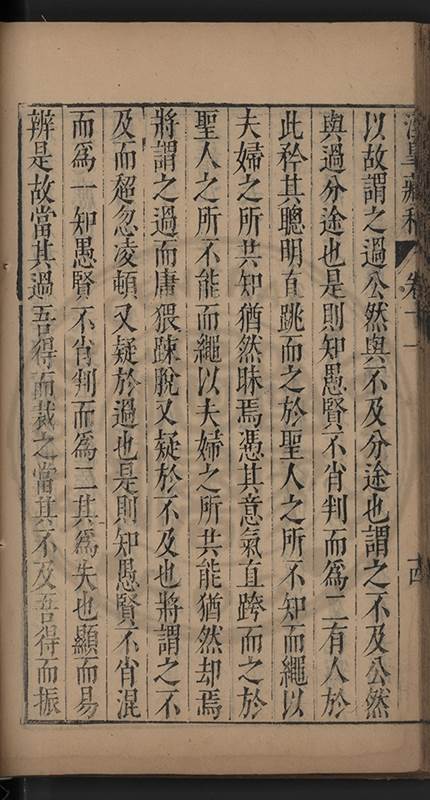 藏稿 卷十一 十四
以故謂之過公然與不及分途也謂之不及公然
與過分途也是則知愚賢不肖判而爲二有人於
此矜其聰明直跳而之於聖人之所不知而繩以
夫婦之所共知猶然昧焉憑其意氣直跨而之於
聖人之所不能而繩以夫婦之所共能猶然却焉
將謂之過而庸猥踈脫又疑於不及也將謂之不
及而超忽凌頓又疑於過也是則知愚賢不肖混
而爲一知愚賢不肖判而爲二其爲失也顯而易
辨是故當其過吾得而裁之當其不及吾得而振